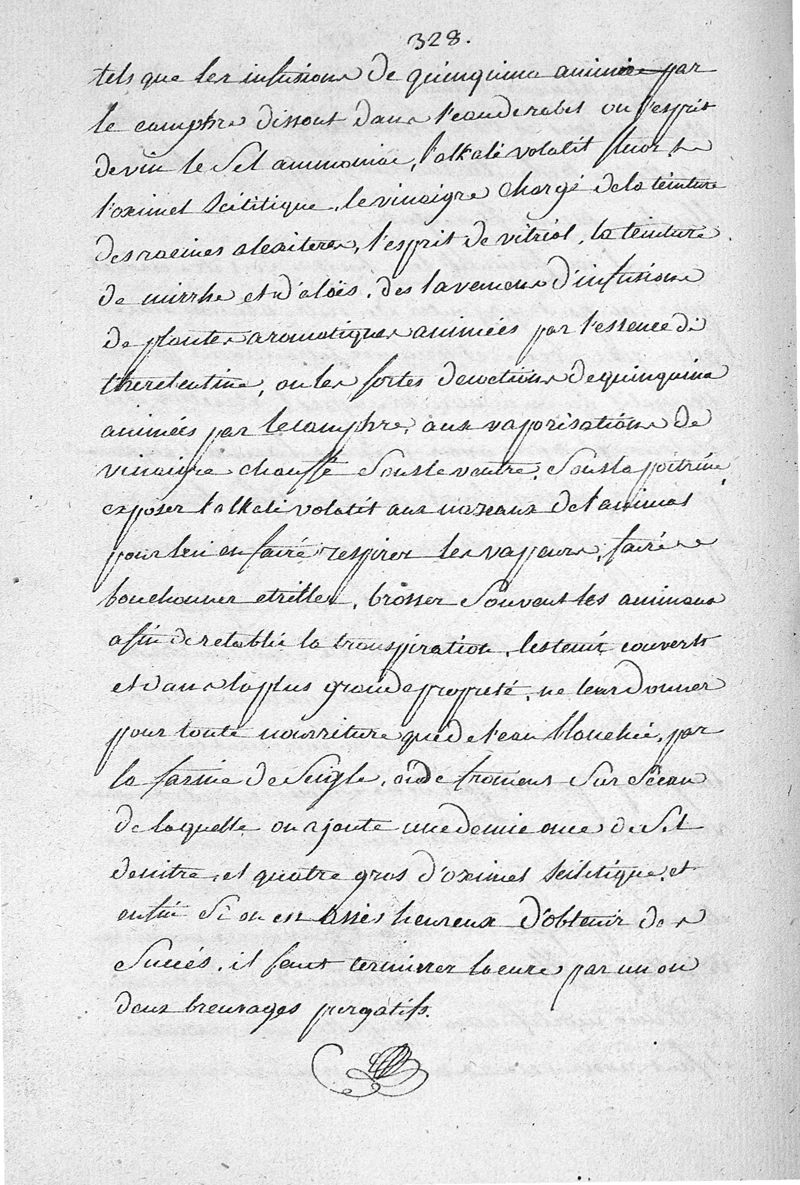 328.
tels que les infusions de quinquina animée par
le camphre dissout dans l'eau de rabel ou l'esprit
de vin le Sel ammoniac, l'alkali volatil fluor, le
l'oximel Scilitique, le vinaigre chargé de la teinture
des racines alexiteres, l'esprit de vitriol, la teinture
de mirrhe et d'aloës, des lavemens d'infusions
de plantes aromatiques animées par l'essence de
therebentine, ou les fortes decoctions de quinquina
animées par le camphre, aux vaporisations de
vinaigre chauffé Sous le ventre, Sous la poitrine,
exposer l'alkali volatil aux nazeaux de l'animal
pour lui en faire respirer les vapeurs, faire
bouchonner etriller, brosser Souvent les animaux
afin de retablir la transpiration, les tenir couverts
et dans la plus grande propreté, ne leur donner
pour toute nourriture que de l'eau blanchie, par
la farine de Seigle, ou de froment Sur Sceau
de laquelle on ajoute une demie once de Sel
de nitre, et quatre gros d'oximel Scilitique, et
enfin Si on est assés heureux d'obtenir des
Succés, il faut terminer la cure par un ou
deux breuvages purgatifs.